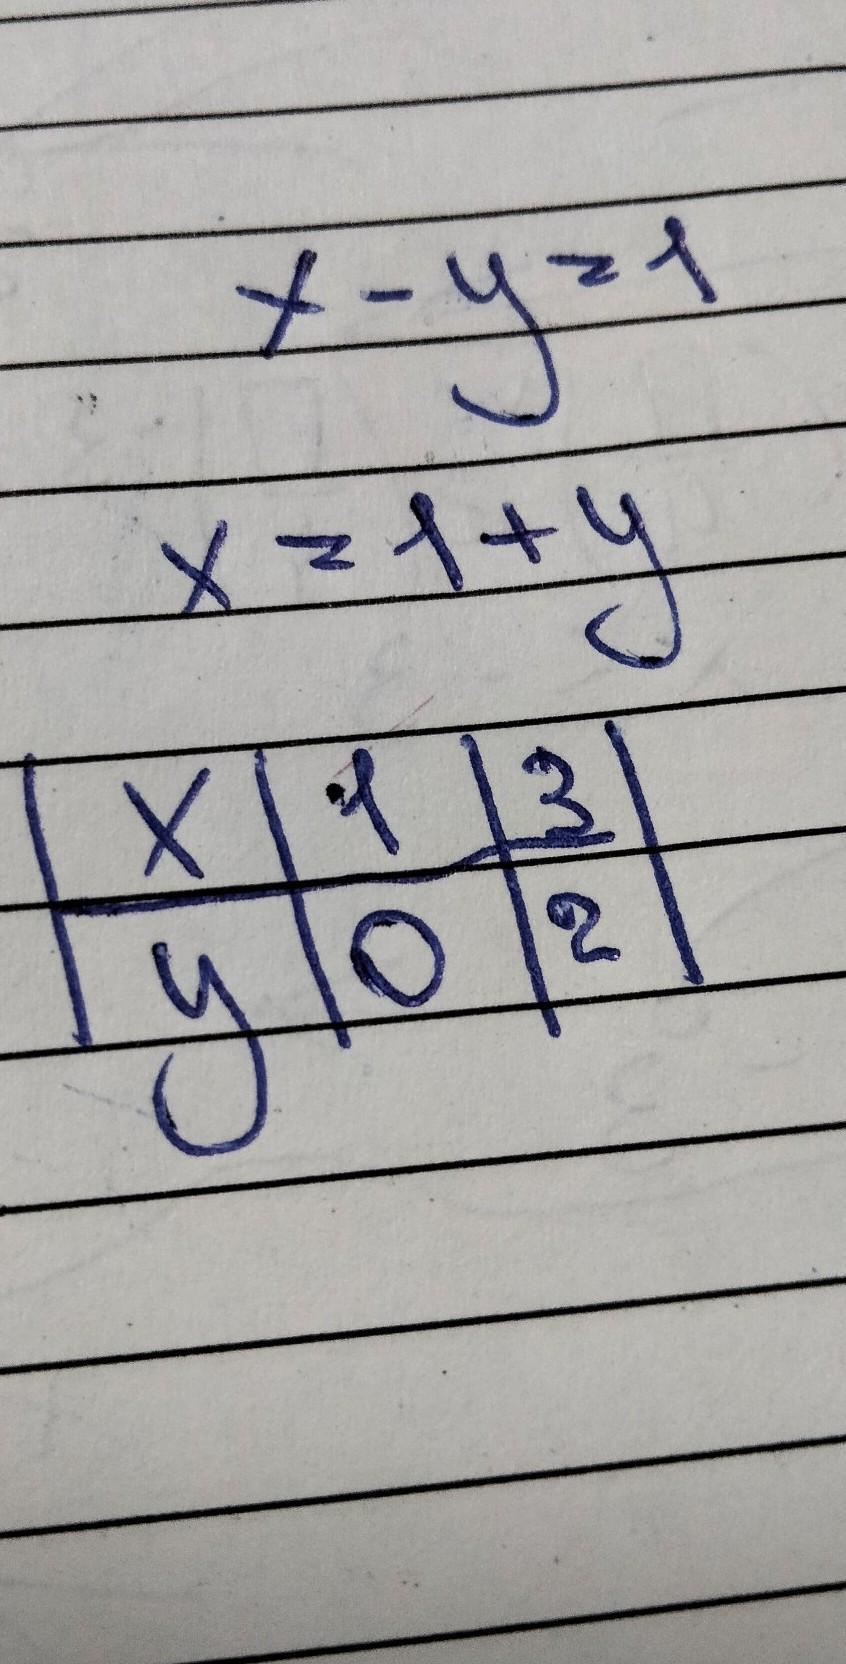 x - y = 1
x = 1 + y
x | 1 | 3
y | 0 | 2